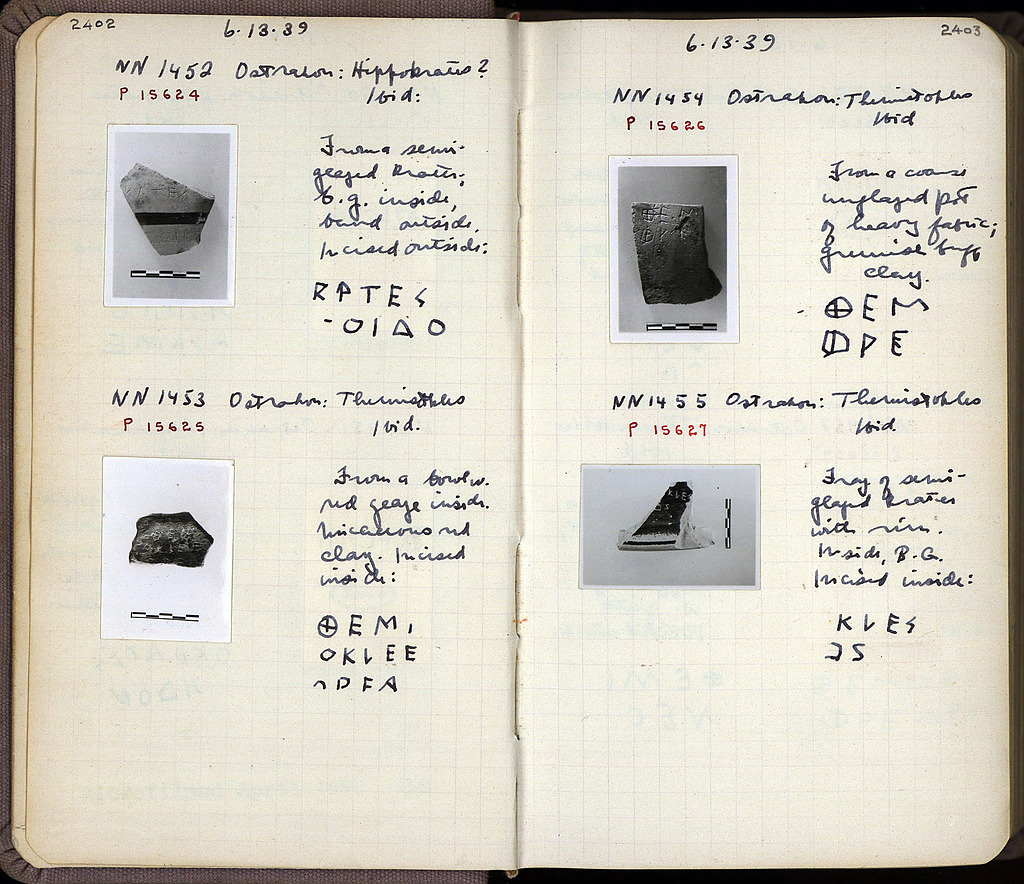 2402
6·13·39
NN 1452 Ostrakon: Hippokrates?
P 15624 Ibid:
From a semi-
glazed krater;
b.g. inside,
band outside.
Incised outside:
RATES
-OIΔO
NN 1453 Ostrakon: Themistokles
P 15625 Ibid.
From a bowl w.
red glaze inside.
micaceous red
clay. Incised
inside:
⊕EMI
OKLEE
DEA
2403
6·13·39
NN 1454 Ostrakon: Themistokles
P 15626 Ibid
From a coarse
unglazed pot
of heavy fabric;
greenish buff
clay.
⊕EM
E
NN 1455 Ostrakon: Themistokles
P 15627 Ibid.
Frag of semi-
glazed krater
with rim.
Inside, B.G.
Incised inside:
KLES
OS